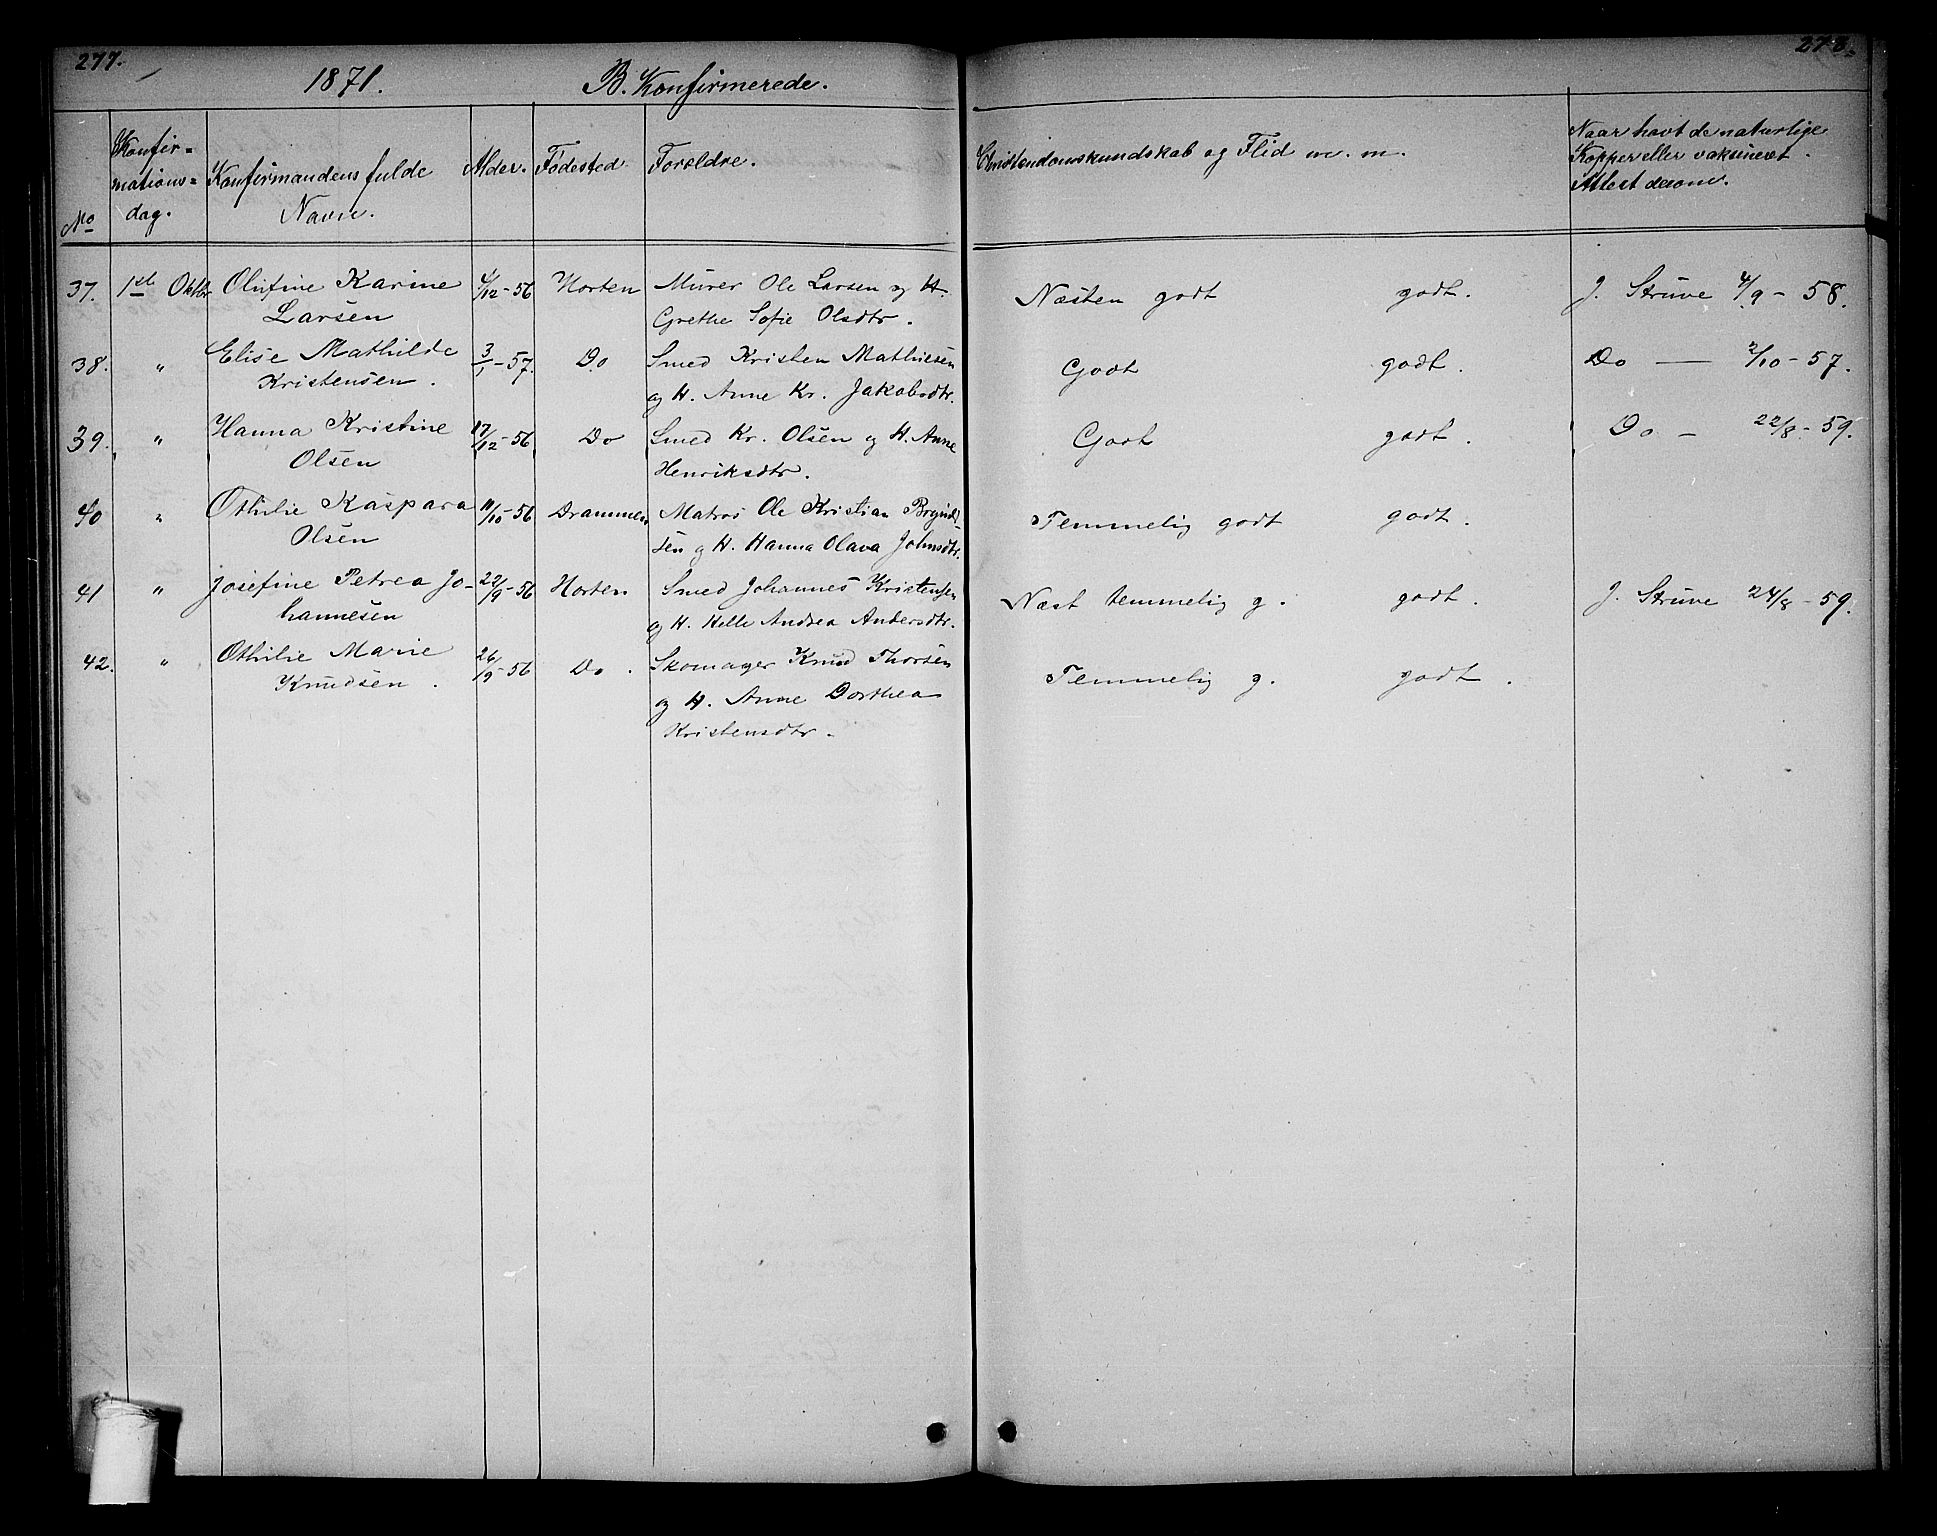 277.
278.
1871.
B. Konfirmerede.
No
Konfir=
mations=
dag.
Konfirmandens fulde
Navn.
Alder.
Fødested
Foreldre.
Christendomskundskab og Flid m. m.
Naar havt de naturlige
Kopper eller vaksineret.
Attest derom.
37. 1ste Oktbr Olufine Karine 4/12-56 Horten Murer Ole Larsen og H. Næsten godt godt. J. Struve 4/9-58.
Larsen Grethe Sofie Olsdtr.
38. " Elise Mathilde 3/1-57. Do Smed Kristen Mathiesen Godt godt. Do — 2/10-57.
Kristensen. og H. Anne Kr. Jakobsdtr.
39. " Hanna Kristine 17/12-56 Do Smed Kr. Olsen og H. Anne Godt godt. Do - 22/8-59.
Olsen Henriksdtr.
40 " Othilie Kaspara 11/10-56 Drammen Matros Ole Kristian Temmelig godt godt.
Olsen sen og H. Hanna Olava Johnsdtr.
41 " Josefine Petrea Jo- 22/9-56 Horten Smed Johannes Kristensen Næst temmelig g. godt. J. Struve 24/8-59.
hannesen og H. Helle Andrea Andersdtr.
42. " Othilie Marie 26/9-56 Do. Skomager Knud Thorsen Temmelig g. godt.
Knudsen. og H. Anne Dorthea
Kristensdtr.